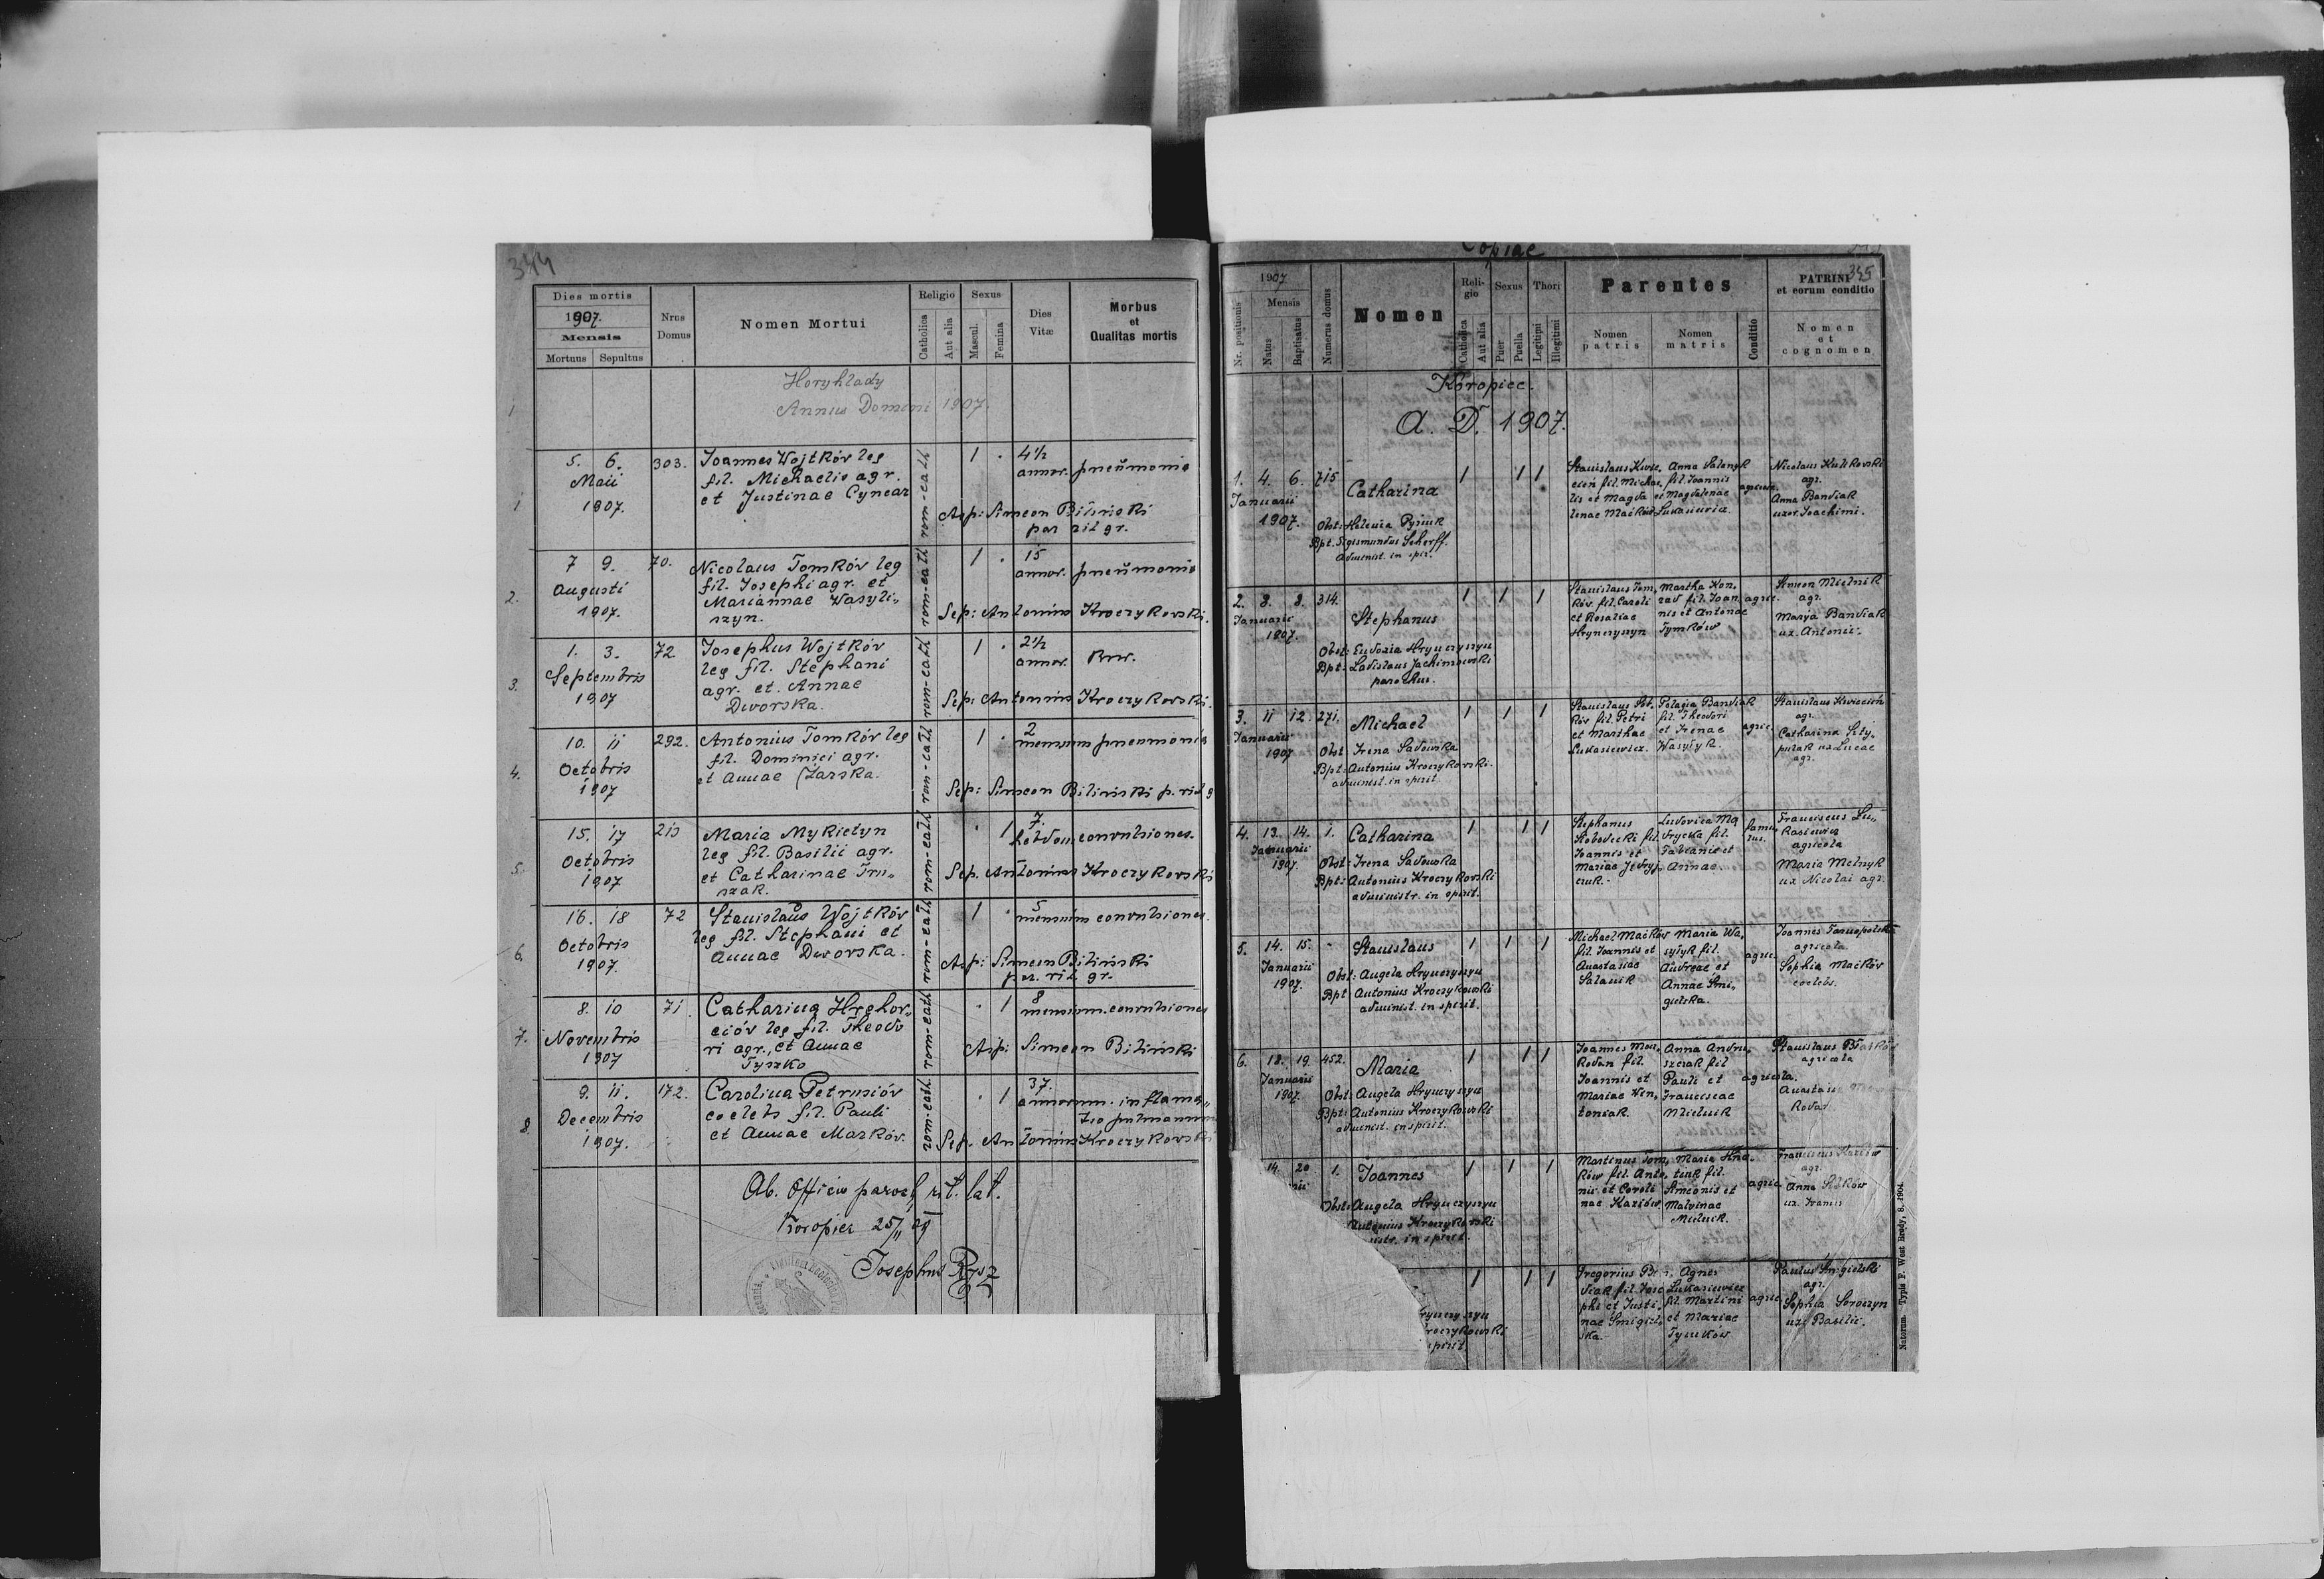 344
Dies mortis
1907.
Mensis
Mortuus Sepultus
Nrus Domus
Nomen Mortui
Religio
Catholica
Aut alia
Sexus
Mascul.
Femina
Dies Vitæ
Morbus
et
Qualitas mortis
Horyhlady
Annus Domini 1907.
1
5. 6. 303. Joannes Wojtków leg rom-cath 1 . 4½
Maii fil. Michaelis agr. annor. pneumonia
1907. et Justinae Cyncar
Asp: Simeon Biliński
par rit gr.
2. 7 9. 70. Nicolaus Tomków leg rom-cath 1 . 15
Augusti fil. Josephi agr. et annor. pneumonia
1907. Mariannae Wasyli„
szyn. Sep: Antonius Kroczykowski.
3. 1. 3. 72 Josephus Wojtków rom-cath 1 . 2½
Septembris leg fil. Stephani annor.
1907 agr. et Annae Sep: Antonius Kroczykowski.
Dworska.
4. 10. 11 292. Antonius Tomków leg rom-cath 1 . 2
Octobris fil. Dominici agr. mensium pneumonia
1907 et Annae Żarska.
Sep: Simeon Biliński p. rit g
5. 15. 17 213 Maria Mykietyn rom-cath . 1 7.
Octobris leg fil. Basilii agr. hebdom convulsiones.
1907 et Catharinae Tru„ Sep. Antonius Kroczykowski
szak.
6. 16. 18 72 Stanislaus Wojtków rom-cath 1 . 5
Octobris leg fil. Stephani et mensium convulsiones.
1907. Annae Dworska. Asp: Simeon Biliński
par. rit. gr.
7. 8. 10 71. Catharina Hrehor„ rom-cath . 1 8
Novembris ciów leg fil. Theodo mensium. convulsiones
1907 ri agr., et Annae Asp: Simeon Biliński
Tyszko
8. 9. 11. 172. Carolina Petrusiów rom.cath. . 1 37.
Decembris coelebs fil. Pauli annorum. inflama„
1907. et Annae Marków. tio pulmonum
Sep. Antonius Kroczykowski
Ab. Officio paroch. rit. lat.
Koropiec
Josephus
Copiae
345
1907
Nr. positionis
Mensis
Natus
Baptisatus
Numerus domus
Nomen
Religio
Catholica
Aut alia
Sexus
Puer
Puella
Thori
Legitimi
Illegitimi
Parentes
Nomen patris
Nomen matris
Conditio
PATRINI
et eorum conditio
Nomen
et
cognomen
Koropiec.
A. D. 1907.
1. 4. 6. 715 Catharina 1 1 1
Januarii
1907. Obst: Helena Pysiuk
Bpt. Sigismundus Scherff.
Administ. in spir.
Stanislaus Kwie„
cień fil. Michae„
lis et Magda
lenae Maćków
Anna Salanyk
fil. Joannis
et Magdalenae
Łukasiewicz.
agricola
Nicolaus Kulikowski
agr.
Anna Bandiak
uxor. Joachimi.
2. 8. 8. 314. Stephanus 1 1 1
Januarii
1907. Obst: Eudoxia Hrynczyszyn
Bpt: Ladislaus Jachimowski
parochus.
Stanislaus Tom„
ków fil. Caroli
et Rosaliae
Hrynczyszyn
Martha Kon„
rad fil. Joan„
nis et Antonae
Tymków
agric.
Simeon Mielnik
agr.
Marya Bandiak
ux. Antonii.
3. 11 12. 271. Michael 1 1 1
Januarii
1907 Obst Irena Sadowska
Bpt: Antonius Kroczykowski.
administ. in spirit.
ków fil. Petri
et Marthae
Łukasiewicz.
Pelagia Bandiak
fil. Theodori
et Irenae
Wasyłyk.
agric.
Stanislaus Kwiecień
agr.
Catharina
ux Lucae
agr.
4. 13. 14. 1. Catharina 1 1 1
Januarii
1907. Obst: Irena Sadowska
Bpt: Antonius Kroczykowski
administr. in spirit.
Stephanus
Słobodecki fil.
Joannis et
Mariae Jędryj„
czuk.
Ludovica Mą„
drycka fil.
Fabianis et
Annae.
famu„
lus.
Franciscus Łu„
kasiewicz
agricola
Maria Melnyk
ux Nicolai agr.
5. 14. 15. - Stanislaus 1 1 1
Januarii
1907. Obst: Angela Hrynczyszyn
Bpt Antonius Kroczykowski
administ. in spirit.
Michael Maćków
fil. Joannis et
Anastasiae
Salanik
Maria Wa„
syłyk fil.
Andreae et
Annae Śmi„
gielska.
agric.
Joannes Tarnopolski
agricola
Sophia Maćków
coelebs.
6. 18. 19. 452. Maria 1 1 1
Januarii
1907. Obst: Angela Hrynczyszyn
Bpt: Antonius Kroczykowski
administ. in spirit.
Joannes Mou„
kodan fil.
Joannis et
Mariae Win„
toniak.
Anna Andru„
szczak fil
Pauli et
Franciscae
Mielnik
agricola.
Stanislaus
agricola
14. 20 1. Joannes 1 1 1
Obst: Angela Hrynczyszyn
Antonius Kroczykowski
in spirit.
Martinus Tom„
ków fil. Anto„
nii et Caroli
nae Kaziów
Maria Hna„
tiuk fil.
Simeonis et
Malvinae
Mielnik.
agric.
Franciscus Kaziów
agr.
Anna
ux.
1 1 1
Hrynczyszyn
Kroczykowski
spirit.
Gregorius Ban
diak fil. Jose
phi et Justi„
nae Śmigiel„
ska.
Agnes
Łukasiewicz
fil. Martini
et Mariae
Tymków
agric.
Paulus Śmigielski
agr.
Sophia Soroczyn
ux. Basilii.
Natorum. Typis F. West Brody, 8. 1904.